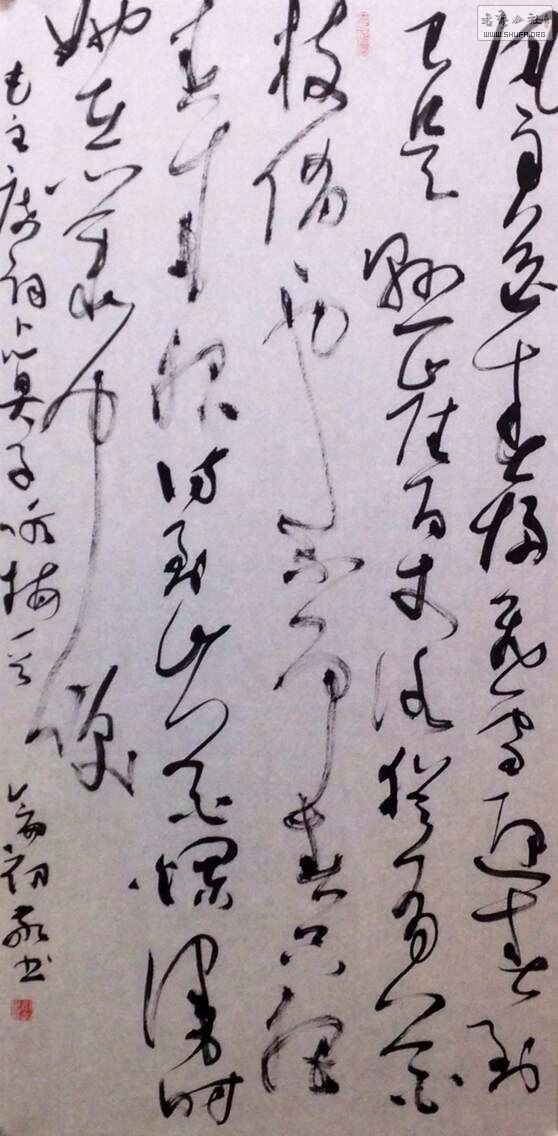 风雨送春归飞雪迎春到
已是悬崖百丈冰犹有花
枝俏々也不争春只把
春来报待到山花烂漫时
她在丛中笑
毛主席词卜算子咏梅一首 敬书
书法公社
WWW.SHUFA.ORG